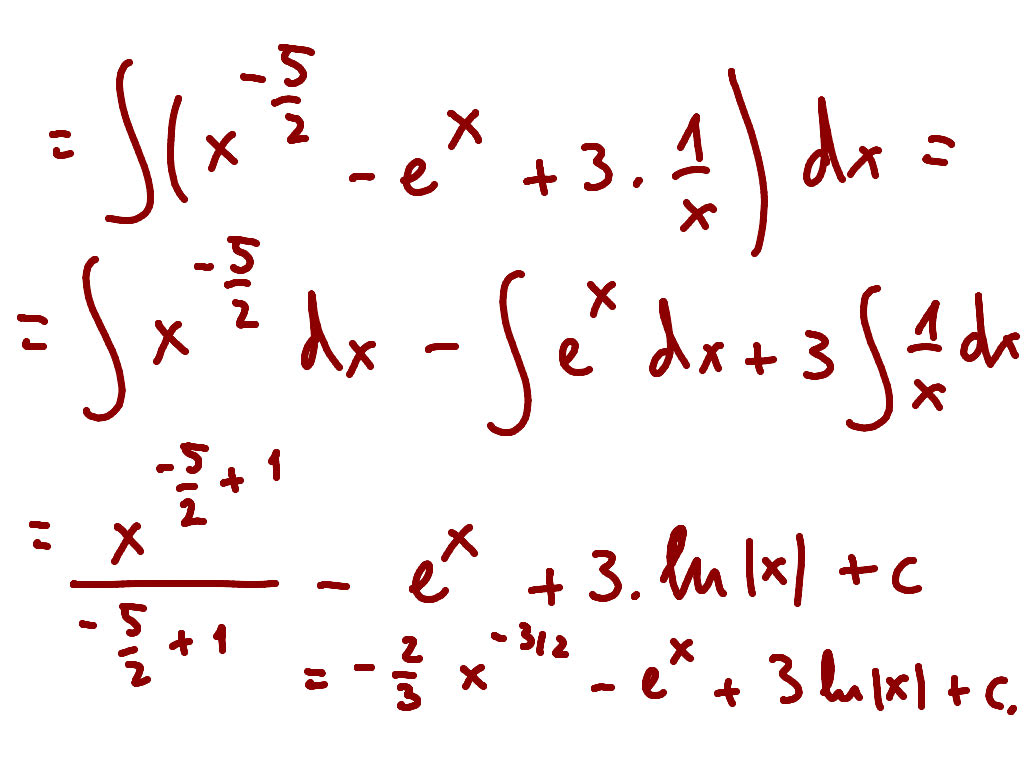 = ∫ ( x^{-5/2} - e^x + 3 · 1/x ) dx =
= ∫ x^{-5/2} dx - ∫ e^x dx + 3 ∫ 1/x dx
= x^{-5/2 + 1} / (-5/2 + 1) - e^x + 3 . ln |x| + c
= - 2/3 x^{-3/2} - e^x + 3 ln |x| + c.